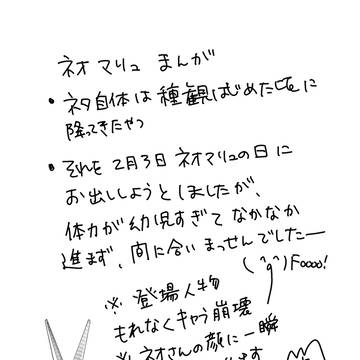 ネオマリュ まんが
・ネタ自体は種観はじめたころに
降ってきたやつ
・それを2月3日ネオマリュの日に
お出ししようとしましたが、
体力が幼児すぎてなかなか
進まず、間に合いまっせんでしたー
(^q^)Foooo!
※登場人物
もれなくキャラ崩壊
※ネオさんの顔に一瞬
ます